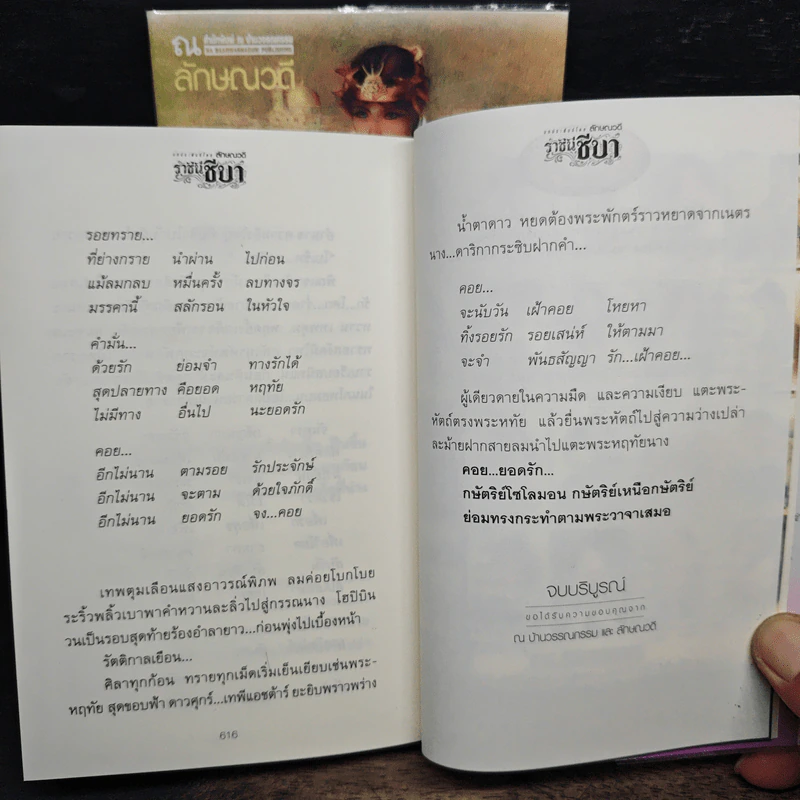 ณ สำนักพิมพ์ ณ บ้านวรรณกรรม
NA BANNVANNAGUM PUBLISHING
ลักษณวดี
ลักษณวดี
ราชินีชีบา
รอยทราย...
ที่ย่างกราย นำผ่าน ไปก่อน
แม้ลมกลบ หมื่นครั้ง ลบทางจร
มรรคานี้ สลักรอน ในหัวใจ
คำมั่น...
ด้วยรัก ย่อมจำ ทางรักได้
สุดปลายทาง คือยอด หฤทัย
ไม่มีทาง อื่นไป นะยอดรัก
คอย...
อีกไม่นาน ตามรอย รักประจักษ์
อีกไม่นาน จะตาม ด้วยใจภักดิ์
อีกไม่นาน ยอดรัก จง...คอย
เทพตุมเลือนแสงอาวรณ์พิภพ ลมค่อยโบกโบย
ระริ้วพลิ้วเบาพาคำหวานละลิ่วไปสู่กรรณนาง โฮปิบิน
วนเป็นรอบสุดท้ายร้องอำลายาว...ก่อนพุ่งไปเบื้องหน้า
รัตติกาลเยือน...
ศิลาทุกก้อน ทรายทุกเม็ดเริ่มเย็นเยียบเช่นพระ-
หฤทัย สุดขอบฟ้า ดาวศุกร์...เทพีแอชต้าร์ ยะยิบพราวพร่าง
616
ลักษณวดี
ราชินีชีบา
น้ำตาดาว หยดต้องพระพักตร์ราวหยาดจากเนตร
นาง...ดาริกากระซิบฝากคำ...
คอย...
จะนับวัน เฝ้าคอย โหยหา
ทิ้งรอยรัก รอยเสน่ห์ ให้ตามมา
จะจำ พันธสัญญา รัก...เฝ้าคอย...
ผู้เดียวดายในความมืด และความเงียบ แตะพระ-
หัตถ์ตรงพระหทัย แล้วยื่นพระหัตถ์ไปสู่ความว่างเปล่า
ละม้ายฝากสายลมนำไปแตะพระหฤทัยนาง
คอย...ยอดรัก...
กษัตริย์โซโลมอน กษัตริย์เหนือกษัตริย์
ย่อมทรงกระทำตามพระวาจาเสมอ
จบบริบูรณ์
ขอได้รับความขอบคุณจาก
ณ บ้านวรรณกรรม และ ลักษณวดี